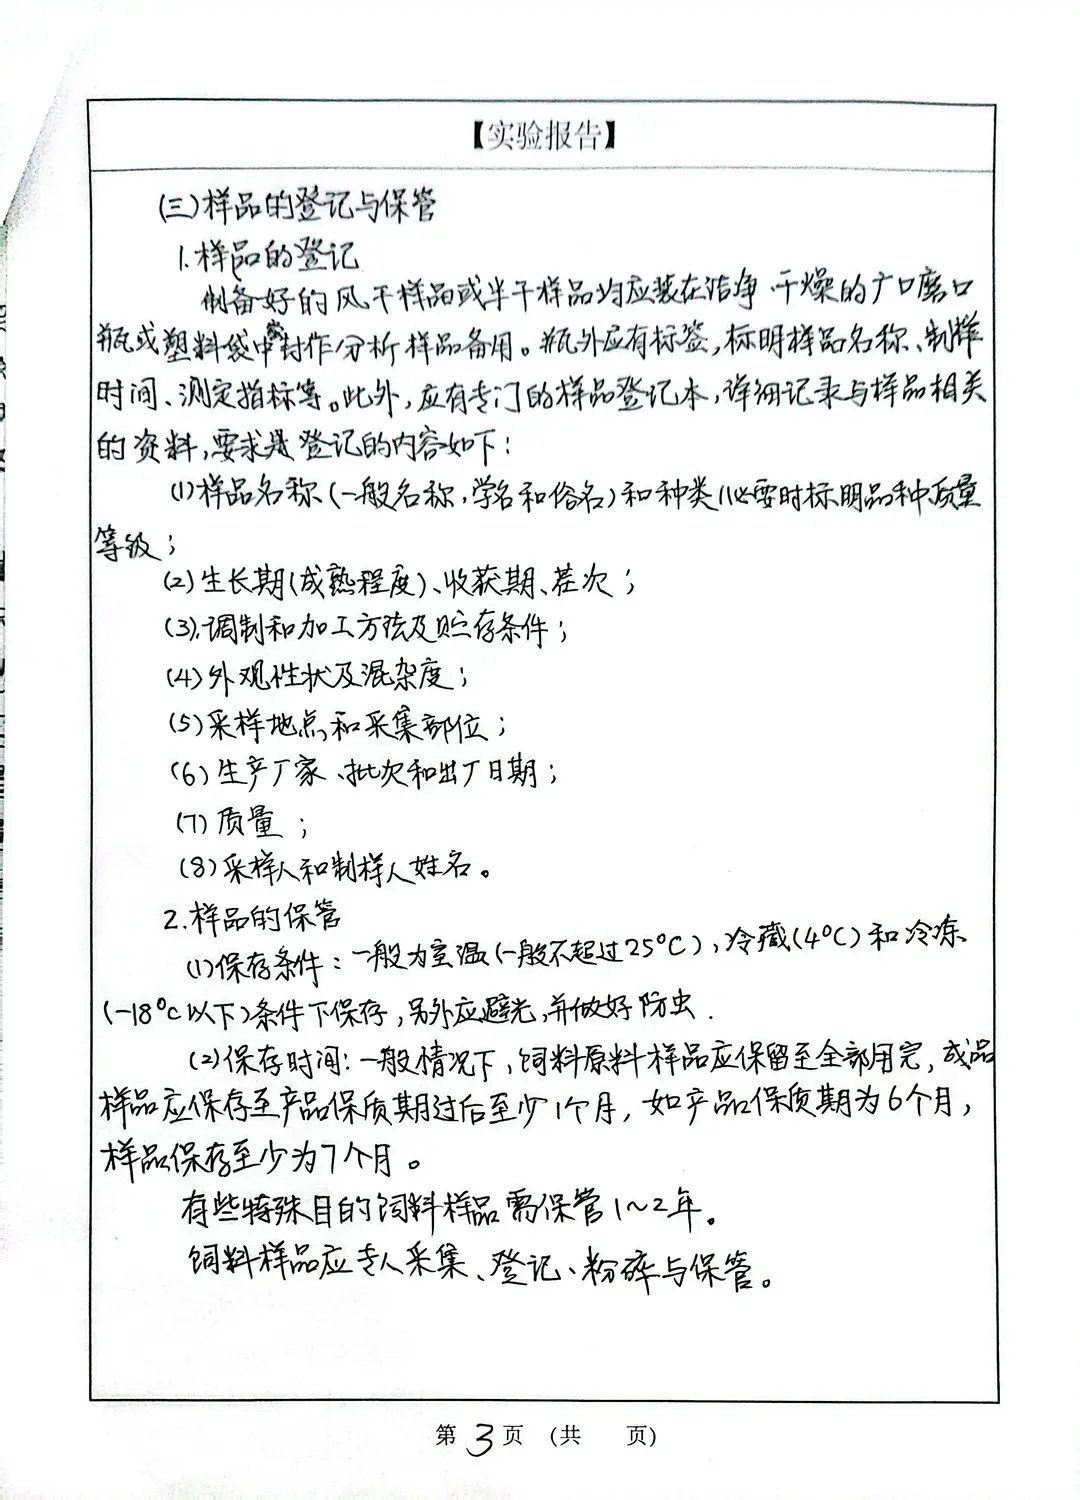 【实验报告】
(三)样品的登记与保管
1.样品的登记
制备好的风干样品或半干样品均应装在洁净、干燥的广口磨口
瓶或塑料袋中密封作分析样品备用。瓶外应有标签,标明样品名称、制样
时间、测定指标等。此外,应有专门的样品登记本,详细记录与样品相关
的资料,要求是登记的内容如下:
(1)样品名称(一般名称,学名和俗名)和种类(必要时标明品种质量
等级;
(2)生长期(成熟程度)、收获期、茬次;
(3).调制和加工方法及贮存条件;
(4)外观性状及混杂度;
(5)采样地点和采集部位;
(6)生产厂家、批次和出厂日期;
(7)质量;
(8)采样人和制样人姓名。
2.样品的保管
(1)保存条件:一般为室温(一般不超过25°C),冷藏(4°C)和冷冻
(-18°C以下)条件下保存,另外应避光,并做好防虫.
(2)保存时间:一般情况下,饲料原料样品应保留至全部用完,成品
样品应保存至产品保质期过后至少1个月,如产品保质期为6个月,
样品保存至少为7个月。
有些特殊目的饲料样品需保管1~2年。
饲料样品应专人采集、登记、粉碎与保管。
第3页 (共 页)